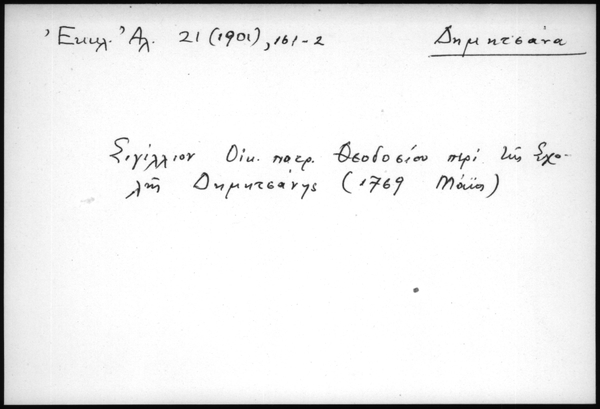 Ἐκκλ. Ἀλ. 21 (1901), 161-2
Δημητσάνα
Σιγίλλιον Οἰκ. πατρ. Θεοδοσίου περί τῆς Σχο-
λῆς Δημητσάνης (1769 Μάϊος)